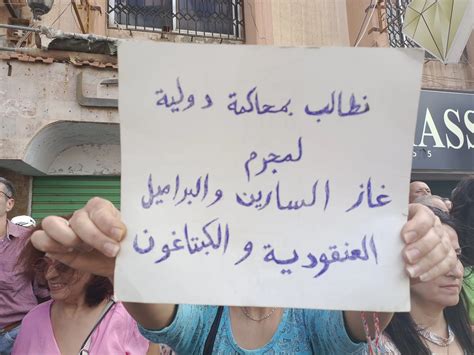 نطالب بمحاكمة دولية
لمجرم
غاز السارين والبراميل
العنقودية و الكبتاغون
ASS